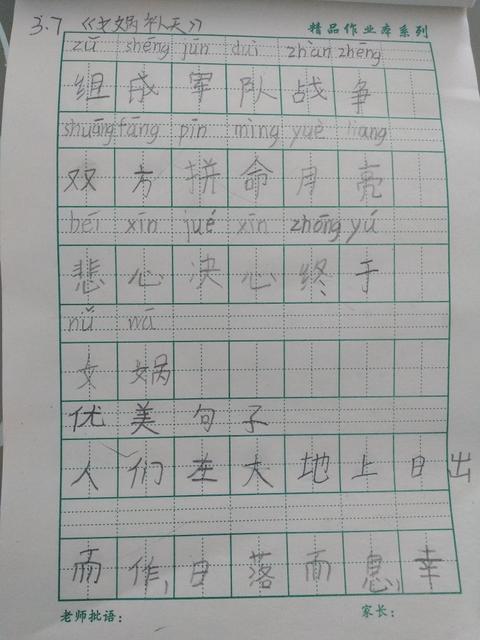 3.7 《女娲补天》 精品作业本系列
zǔ shēng jūn duì zhàn zhēng
组 成 军 队 战 争
shuāng fāng pīn mìng yuè liang
双 方 拼 命 月 亮
bēi xīn jué xīn zhōng yú
悲 心 决 心 终 于
nǚ wā
女 娲
优 美 句 子
人 们 在 大 地 上 日 出
而 作, 日 落 而 息, 幸
老师批语: 家长: